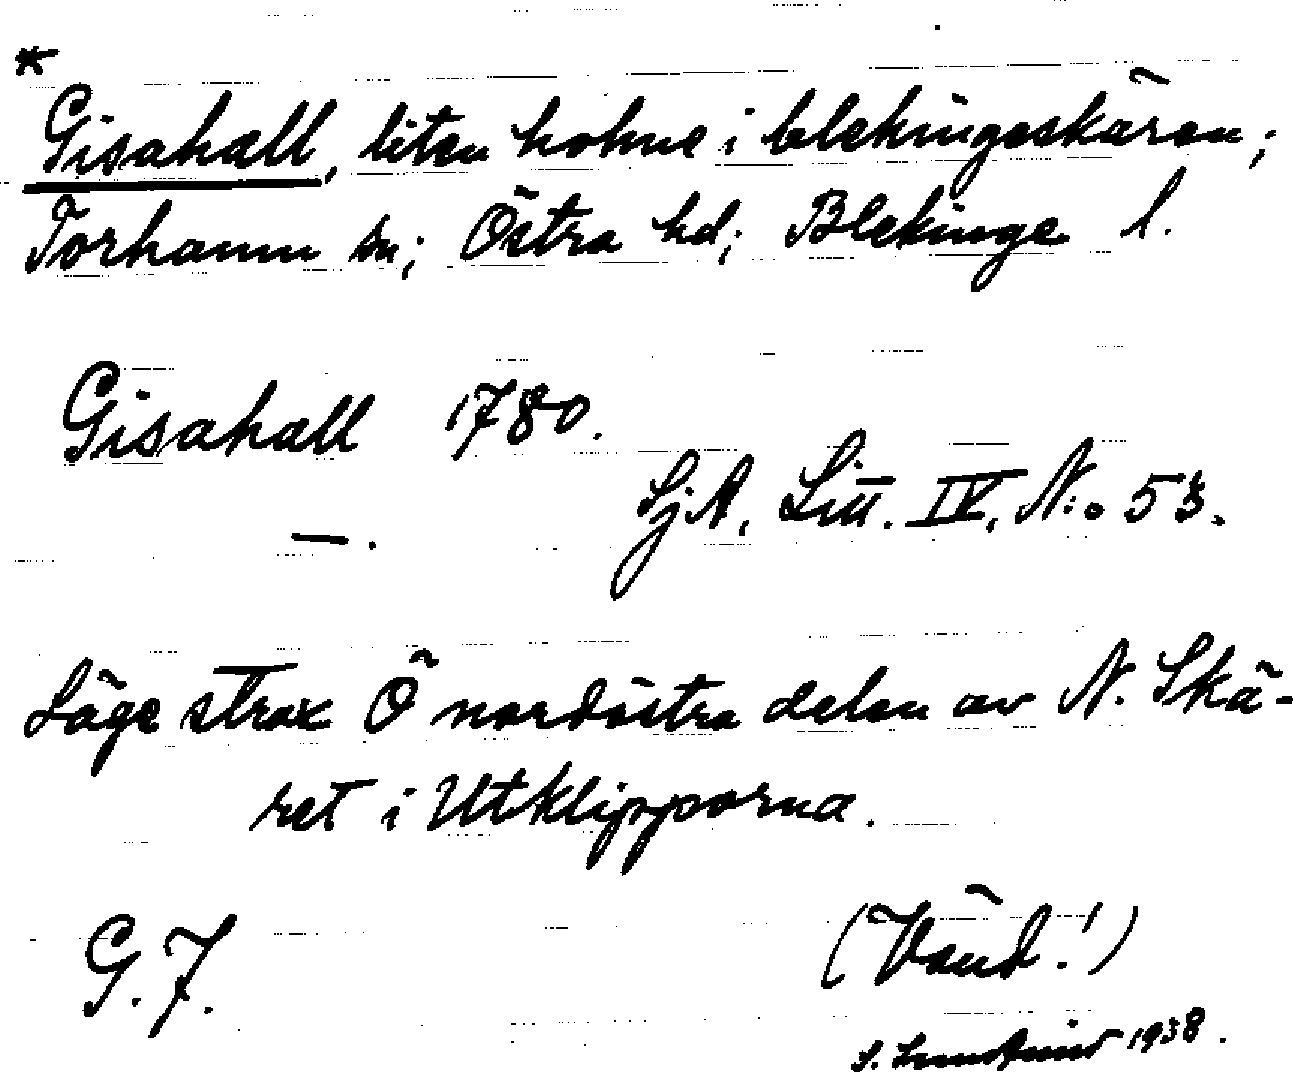 *
Gisahall, liten holme i blekingeskären;
Torhamn sn; Östra hd; Blekinge l.
Gisahall 1780.
SjA, Litt. IV, N:o 53.
— .
Läge strax Ö nordöstra delen av N. Skä-
ret i Utklipporna.
G. F.
(Vänd!)
S. 1938.